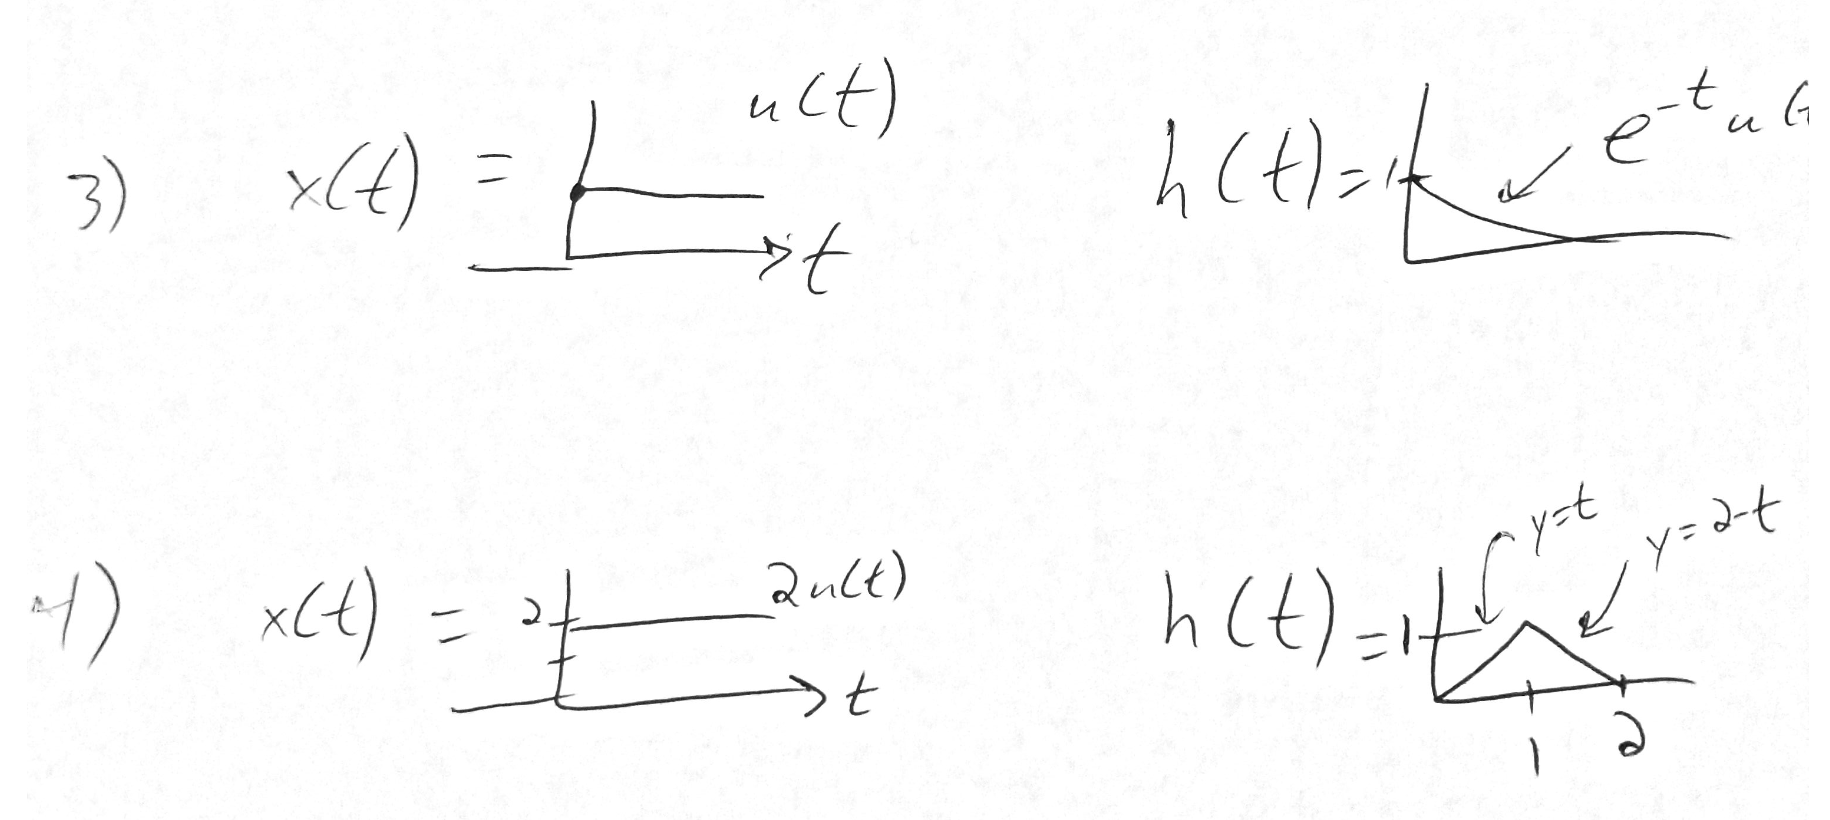 3) x(t) = u(t) t h(t) = 1 e^-t u(
4) x(t) = 2 2u(t) t h(t) = 1 y=t y=2-t 1 2